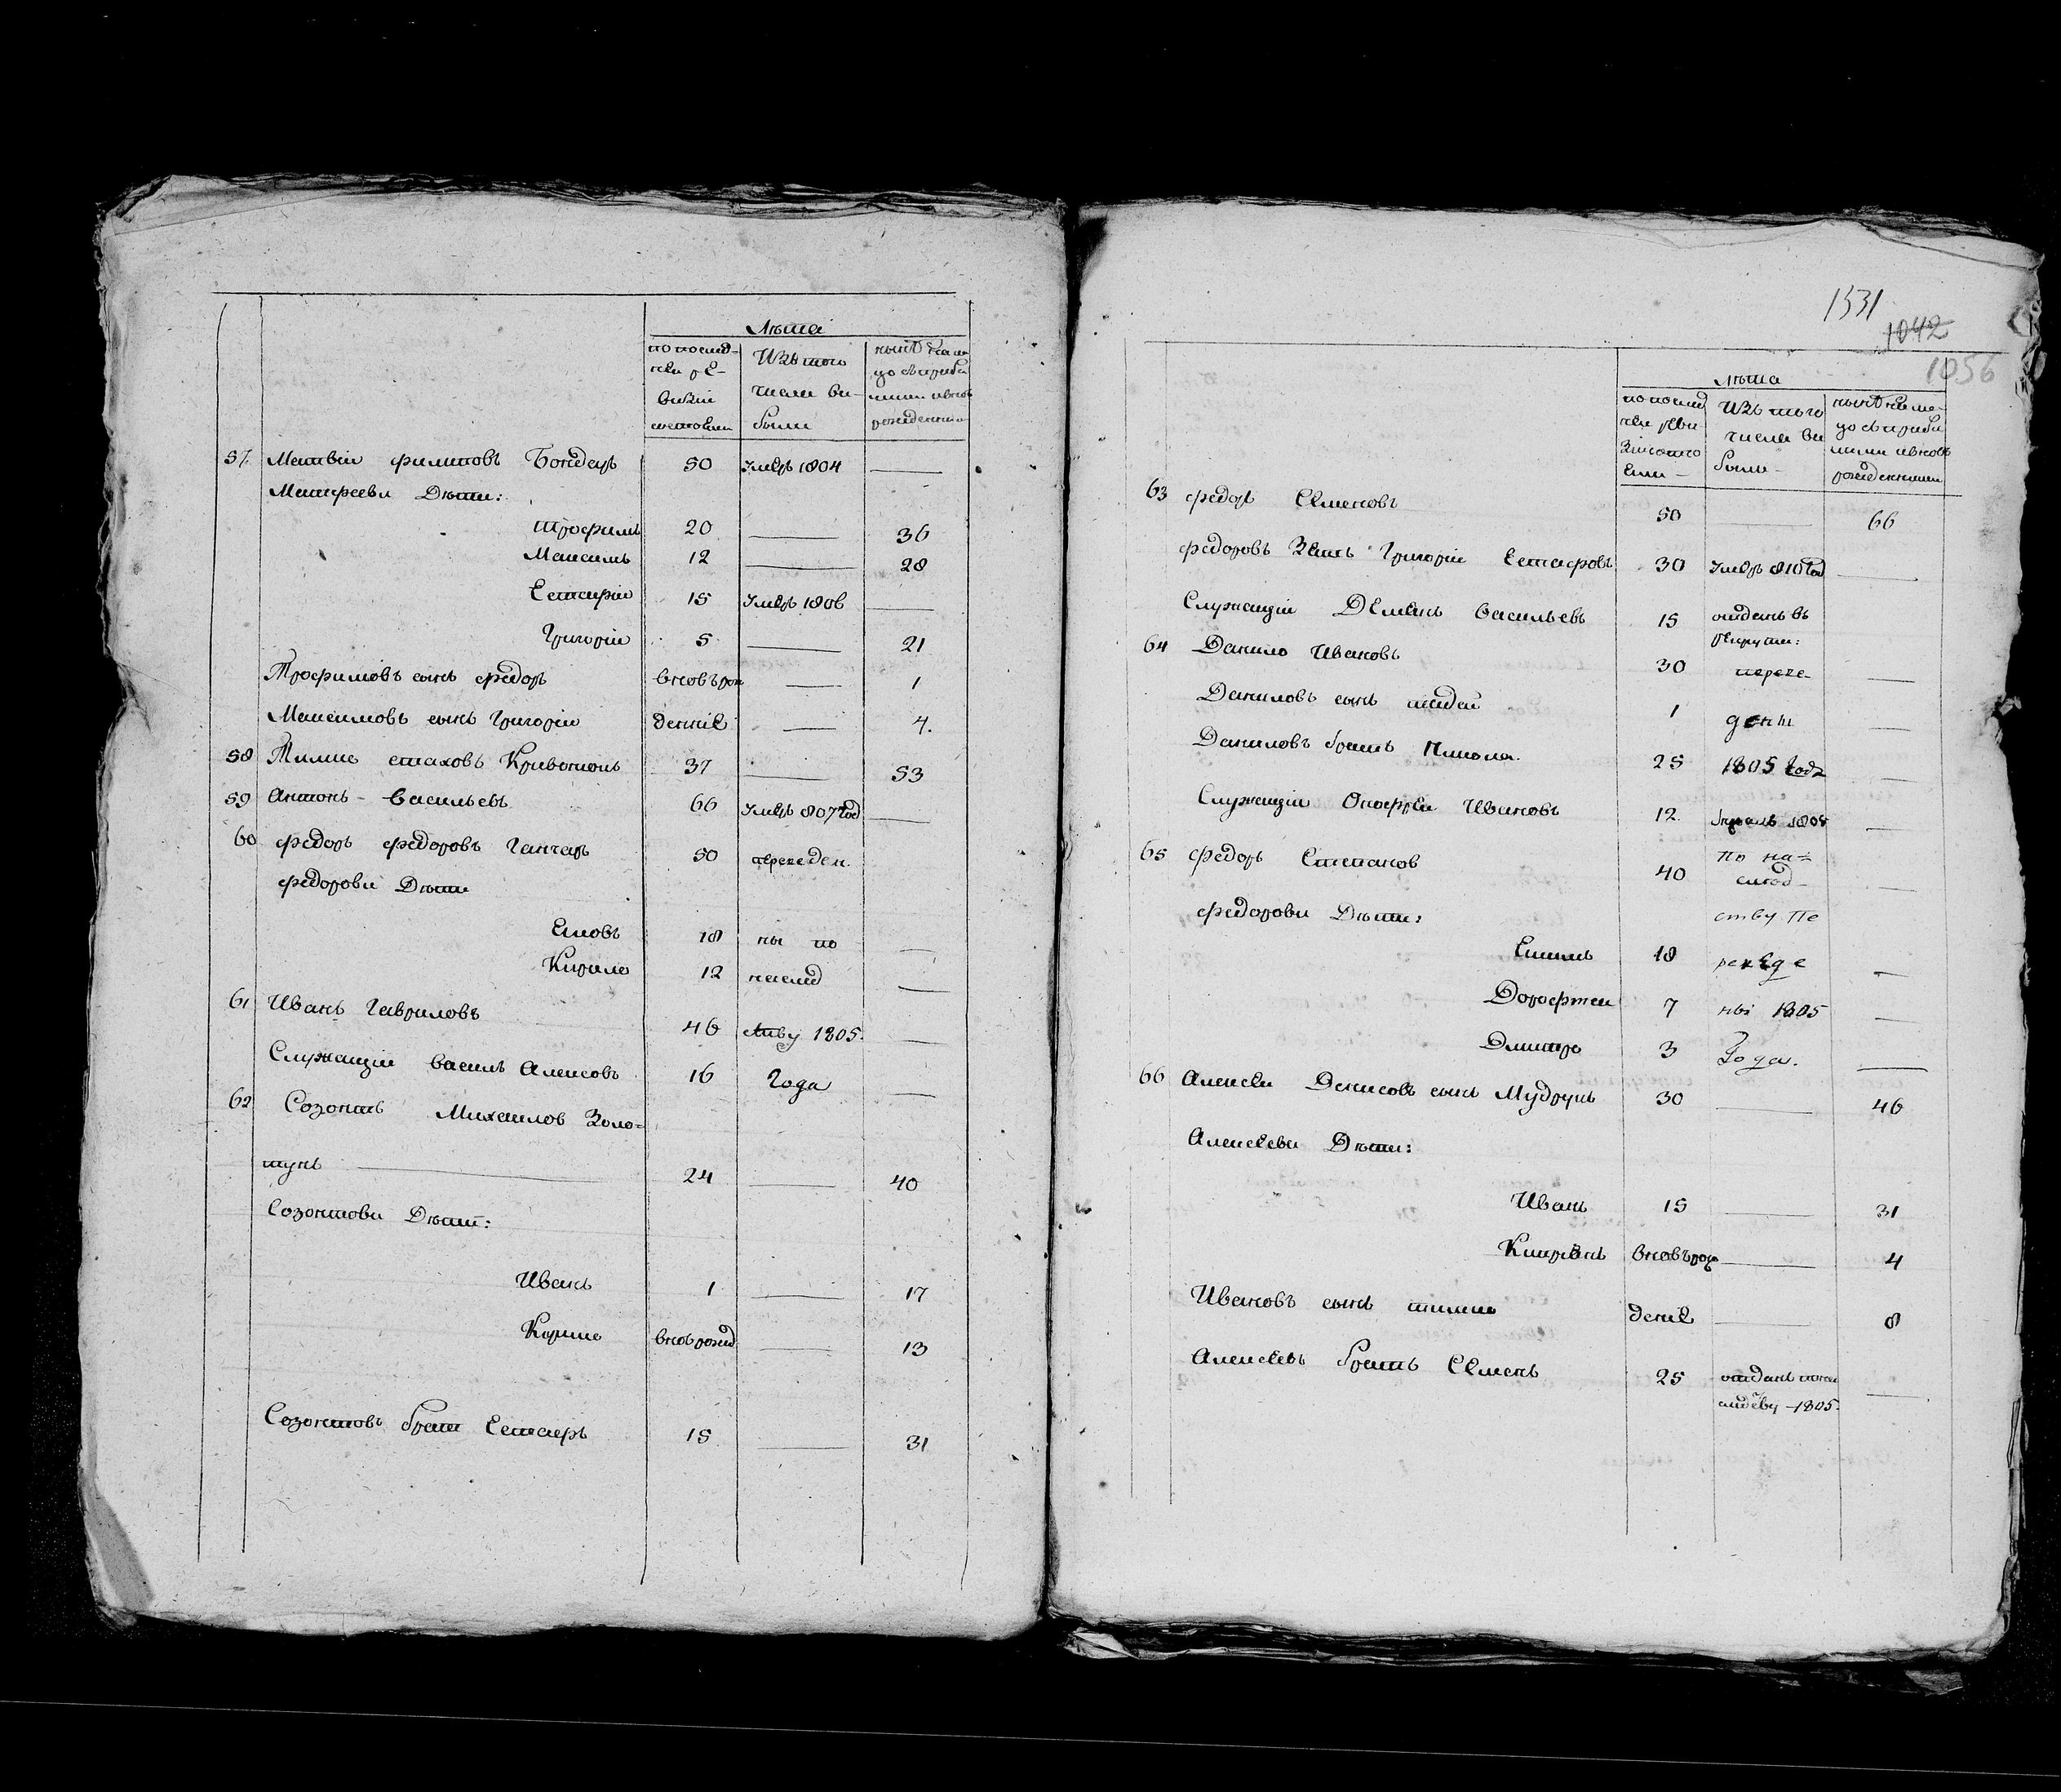 Лѣта
по послѣд-
ней ре-
визіи
состояли
Изъ того
числа вы-
было
нынѣ на ли
цо съ прибы
лыми и вновь
рожденными
57. Матвій филиповъ Бондарь 50 Умеръ 1804 —
Матфеевы Дѣти:
трофимъ 20 — 36
Максимъ 12 — 28
Естафій 15 Умеръ 1806 —
Григорій 5 — 21
Трофимовъ сынъ федоръ вновь рож — 1
Максимовъ сынъ Григорій денніе — 4.
58 стаховъ 37 — 53
59 Антонъ Васильевъ 66 Умеръ 807 год —
60 федоръ федоровъ Ганчаръ 50 переведен.
федоровы Дѣти
Яковъ 18 ны по —
Кирило 12 наслед —
61 Иванъ Гавриловъ 46 ству 1805. —
Служащій Василь Алексовъ 16 года —
62 Созонтъ Михайлов Золо=
тунъ — 24 — 40
Созонтовы Дѣти:
Иванъ 1 — 17
вновь рожд — 13
Созонтовъ братъ Естафъ 15 — 31
1531
1042
1056
Лѣта
по послед
ней реви
зіи состо
яли —
Изъ того
числа вы
было —
нынѣ на ли-
цо съ прибы
лыми и вновь
рожденными
63 федоръ Семеновъ 50 — 66
федоровъ Зять Григорій Естафовъ 30 Умеръ 810 год —
Служащій Демянъ Васильевъ 15 отданъ въ
рекруты:
64 Данило Ивановъ 30 переве- —
Даниловъ сынъ 1 дены —
Даниловъ братъ Никола. 25 1805 года —
Служащій Онофрей Ивановъ 12 1808 —
65 федоръ Степанов 40 по на=
след- —
федоровы Дѣти: ству пе
18 реведе —
Дорофтей 7 ны 1805 —
Дмитро 3 Года. —
66 Алексей Денисовъ сынъ Мудрунъ 30 — 46
Алексеевы Дѣти:
Иванъ 15 — 31
Кипріянъ вновь рож — 4
Ивановъ сынъ деніе — 8
Алексеевъ братъ Семенъ 25 отданъ по на —
следству 1805.